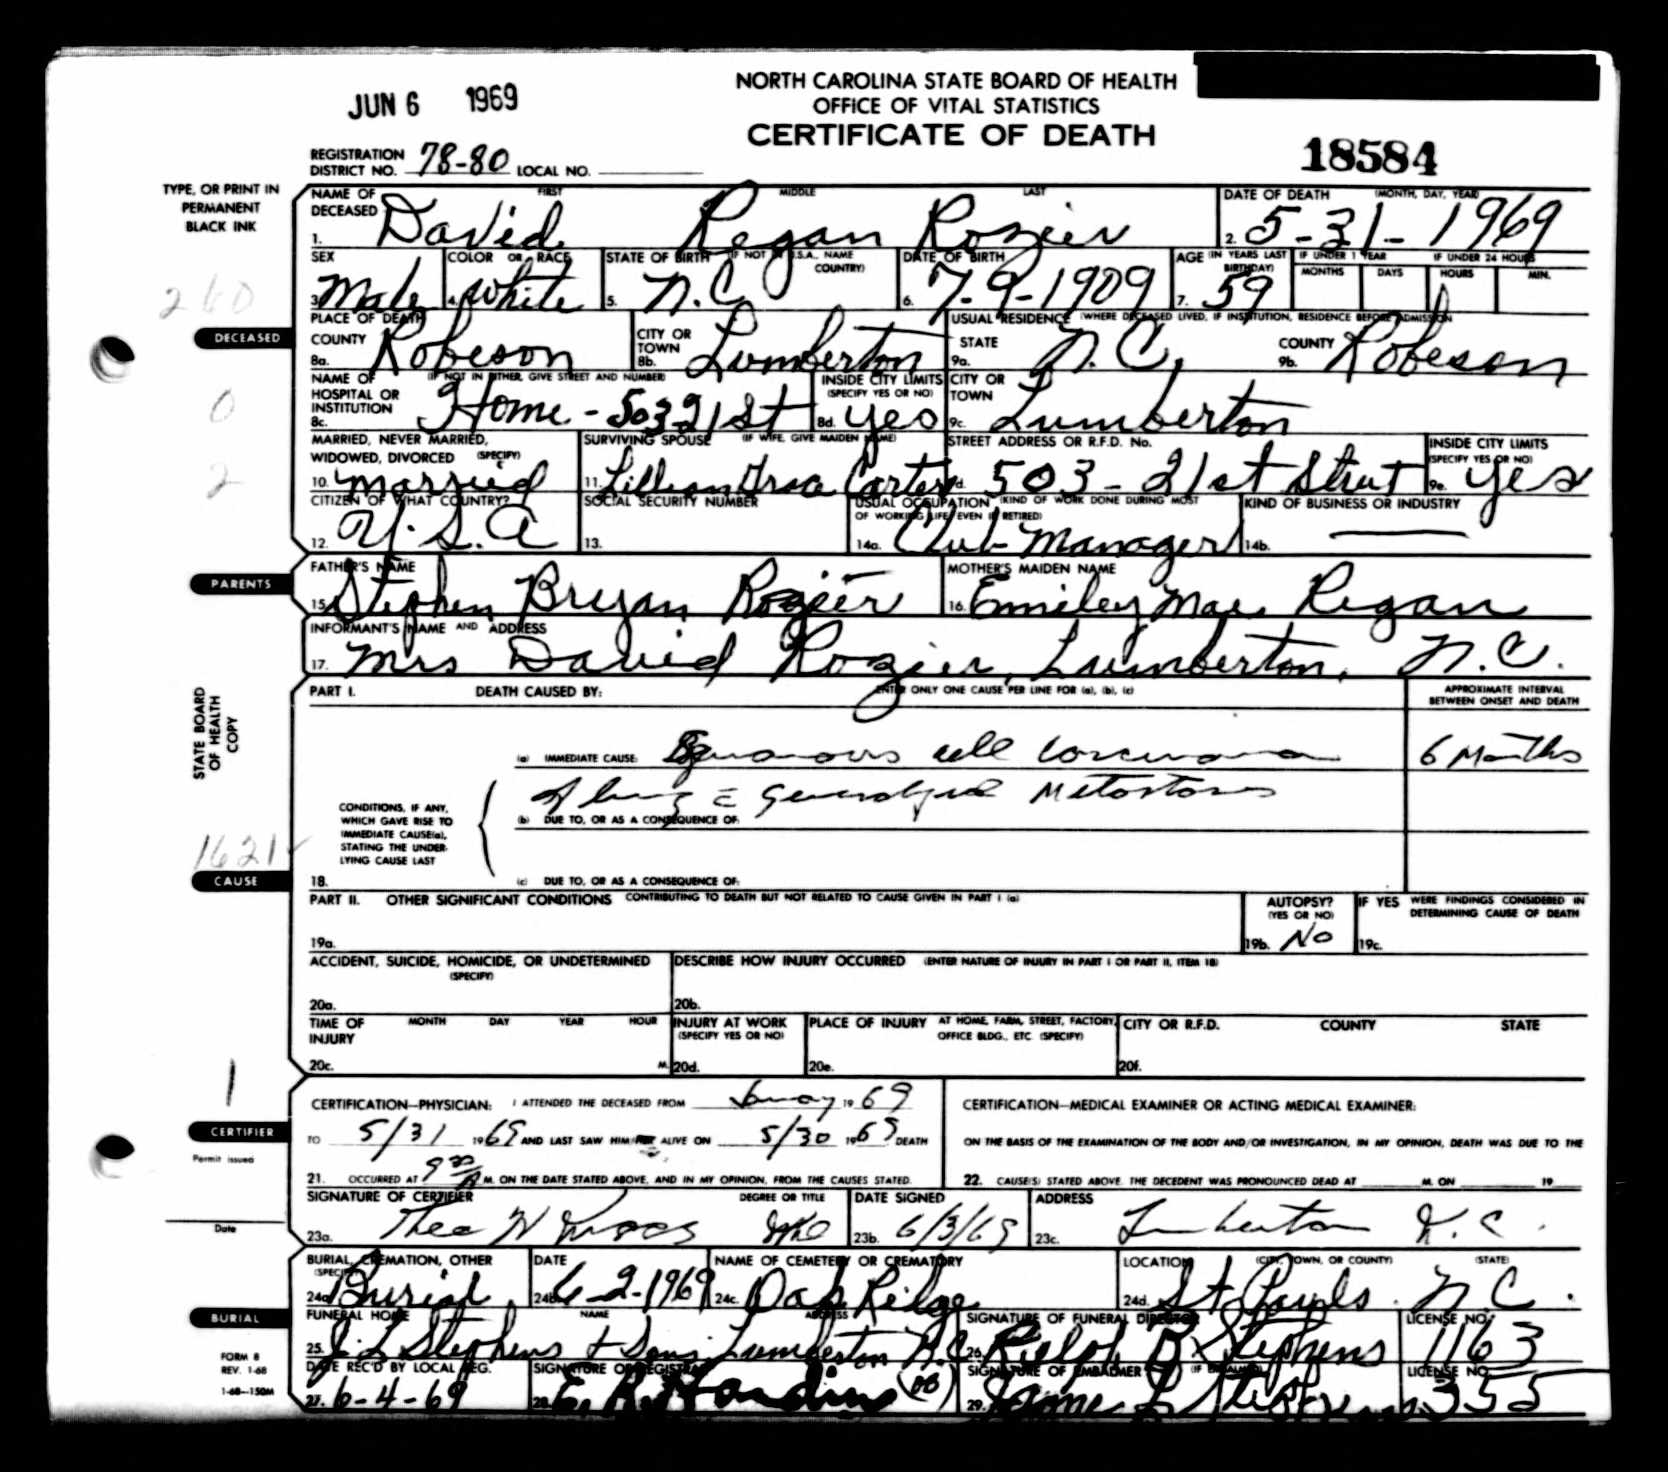 JUN 6 1969
NORTH CAROLINA STATE BOARD OF HEALTH
OFFICE OF VITAL STATISTICS
CERTIFICATE OF DEATH
18584
REGISTRATION DISTRICT NO. 78-80 LOCAL NO.
TYPE, OR PRINT IN PERMANENT BLACK INK
NAME OF DECEASED FIRST MIDDLE LAST DATE OF DEATH (MONTH, DAY, YEAR)
1. David Regan Rozier 2. 5-31-1969
SEX COLOR OR RACE STATE OF BIRTH (IF NOT IN U.S.A., NAME COUNTRY) DATE OF BIRTH AGE (IN YEARS LAST BIRTHDAY) IF UNDER 1 YEAR MONTHS DAYS IF UNDER 24 HOURS HOURS MIN.
3. Male 4. White 5. N.C 6. 7-9-1909 7. 59
260
DECEASED
PLACE OF DEATH USUAL RESIDENCE (WHERE DECEASED LIVED, IF INSTITUTION, RESIDENCE BEFORE ADMISSION
COUNTY 8a. Robeson CITY OR TOWN 8b. Lumberton STATE 9a. N.C. COUNTY 9b. Robeson
NAME OF HOSPITAL OR INSTITUTION (IF NOT IN EITHER, GIVE STREET AND NUMBER) 8c. Home - 503-21 St INSIDE CITY LIMITS (SPECIFY YES OR NO) 8d. yes CITY OR TOWN 9c. Lumberton
0
MARRIED, NEVER MARRIED, WIDOWED, DIVORCED (SPECIFY) SURVIVING SPOUSE (IF WIFE, GIVE MAIDEN NAME) STREET ADDRESS OR R.F.D. No. INSIDE CITY LIMITS (SPECIFY YES OR NO)
10. married 11. Lillian Carter 9d. 503-21st Street 9e. yes
2
CITIZEN OF WHAT COUNTRY? SOCIAL SECURITY NUMBER USUAL OCCUPATION (KIND OF WORK DONE DURING MOST OF WORKING LIFE, EVEN IF RETIRED) KIND OF BUSINESS OR INDUSTRY
12. U.S.A 13. 14a. Club Manager 14b. —
PARENTS
FATHER'S NAME MOTHER'S MAIDEN NAME
15. Stephen Bryan Rozier 16. Emiley Mae Regan
INFORMANT'S NAME AND ADDRESS
17. Mrs David Rozier, Lumberton, N.C.
STATE BOARD OF HEALTH COPY
PART I. DEATH CAUSED BY: ENTER ONLY ONE CAUSE PER LINE FOR (a), (b), (c) APPROXIMATE INTERVAL BETWEEN ONSET AND DEATH
(a) IMMEDIATE CAUSE: Squamous cell carcinoma 6 Months
of lung c̄ Generalized Metastases
CONDITIONS, IF ANY, WHICH GAVE RISE TO IMMEDIATE CAUSE(a), STATING THE UNDERLYING CAUSE LAST
(b) DUE TO, OR AS A CONSEQUENCE OF:
1621
CAUSE
18. (c) DUE TO, OR AS A CONSEQUENCE OF:
PART II. OTHER SIGNIFICANT CONDITIONS CONTRIBUTING TO DEATH BUT NOT RELATED TO CAUSE GIVEN IN PART I (a) AUTOPSY? (YES OR NO) IF YES WERE FINDINGS CONSIDERED IN DETERMINING CAUSE OF DEATH
19a. 19b. No 19c.
ACCIDENT, SUICIDE, HOMICIDE, OR UNDETERMINED (SPECIFY) DESCRIBE HOW INJURY OCCURRED (ENTER NATURE OF INJURY IN PART I OR PART II, ITEM 18)
20a. 20b.
TIME OF INJURY MONTH DAY YEAR HOUR INJURY AT WORK (SPECIFY YES OR NO) PLACE OF INJURY AT HOME, FARM, STREET, FACTORY, OFFICE BLDG., ETC. (SPECIFY) CITY OR R.F.D. COUNTY STATE
20c. M. 20d. 20e. 20f.
1
CERTIFIER
Permit issued
Date
CERTIFICATION—PHYSICIAN: I ATTENDED THE DECEASED FROM January 19 69
TO 5/31 1969 AND LAST SAW HIM/HER ALIVE ON 5/30 1969 DEATH
21. OCCURRED AT 9 00 A M. ON THE DATE STATED ABOVE, AND IN MY OPINION, FROM THE CAUSES STATED.
CERTIFICATION—MEDICAL EXAMINER OR ACTING MEDICAL EXAMINER:
ON THE BASIS OF THE EXAMINATION OF THE BODY AND/OR INVESTIGATION, IN MY OPINION, DEATH WAS DUE TO THE
22. CAUSE(S) STATED ABOVE. THE DECEDENT WAS PRONOUNCED DEAD AT M. ON 19
SIGNATURE OF CERTIFIER DEGREE OR TITLE DATE SIGNED ADDRESS
23a. Theo H MD 23b. 6/3/69 23c. Lumberton N.C.
BURIAL, CREMATION, OTHER (SPECIFY) DATE NAME OF CEMETERY OR CREMATORY LOCATION (CITY, TOWN, OR COUNTY) (STATE)
24a. Burial 24b. 6-2-1969 24c. Oak Ridge 24d. St. Pauls N.C.
BURIAL
FUNERAL HOME NAME ADDRESS SIGNATURE OF FUNERAL DIRECTOR LICENSE NO.
25. J L Stephens & Sons Lumberton N.C 26. B Stephens 1163
DATE REC'D BY LOCAL REG. SIGNATURE OF REGISTRAR SIGNATURE OF EMBALMER (IF EMBALMED) LICENSE NO.
27. 6-4-69 28. E. R. Hardin 29. James L Stephens 355
FORM 8
REV. 1-68
1-68—150M